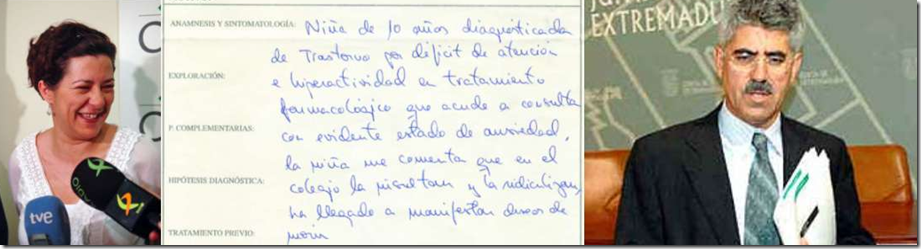 EXTREMADU
tve
RADIO
ANAMNESIS Y SINTOMATOLOGÍA: Niña de 10 años diagnosticada
de Trastorno por déficit de atención
EXPLORACIÓN: e hiperactividad en tratamiento
farmacológico que acude a consulta
P. COMPLEMENTARIAS: con evidente estado de ansiedad.
la niña me comenta que en el
HIPÓTESIS DIAGNÓSTICA: colegio la insultan y la ridiculizan,
ha llegado a manifestar deseos de
TRATAMIENTO PREVIO: morir